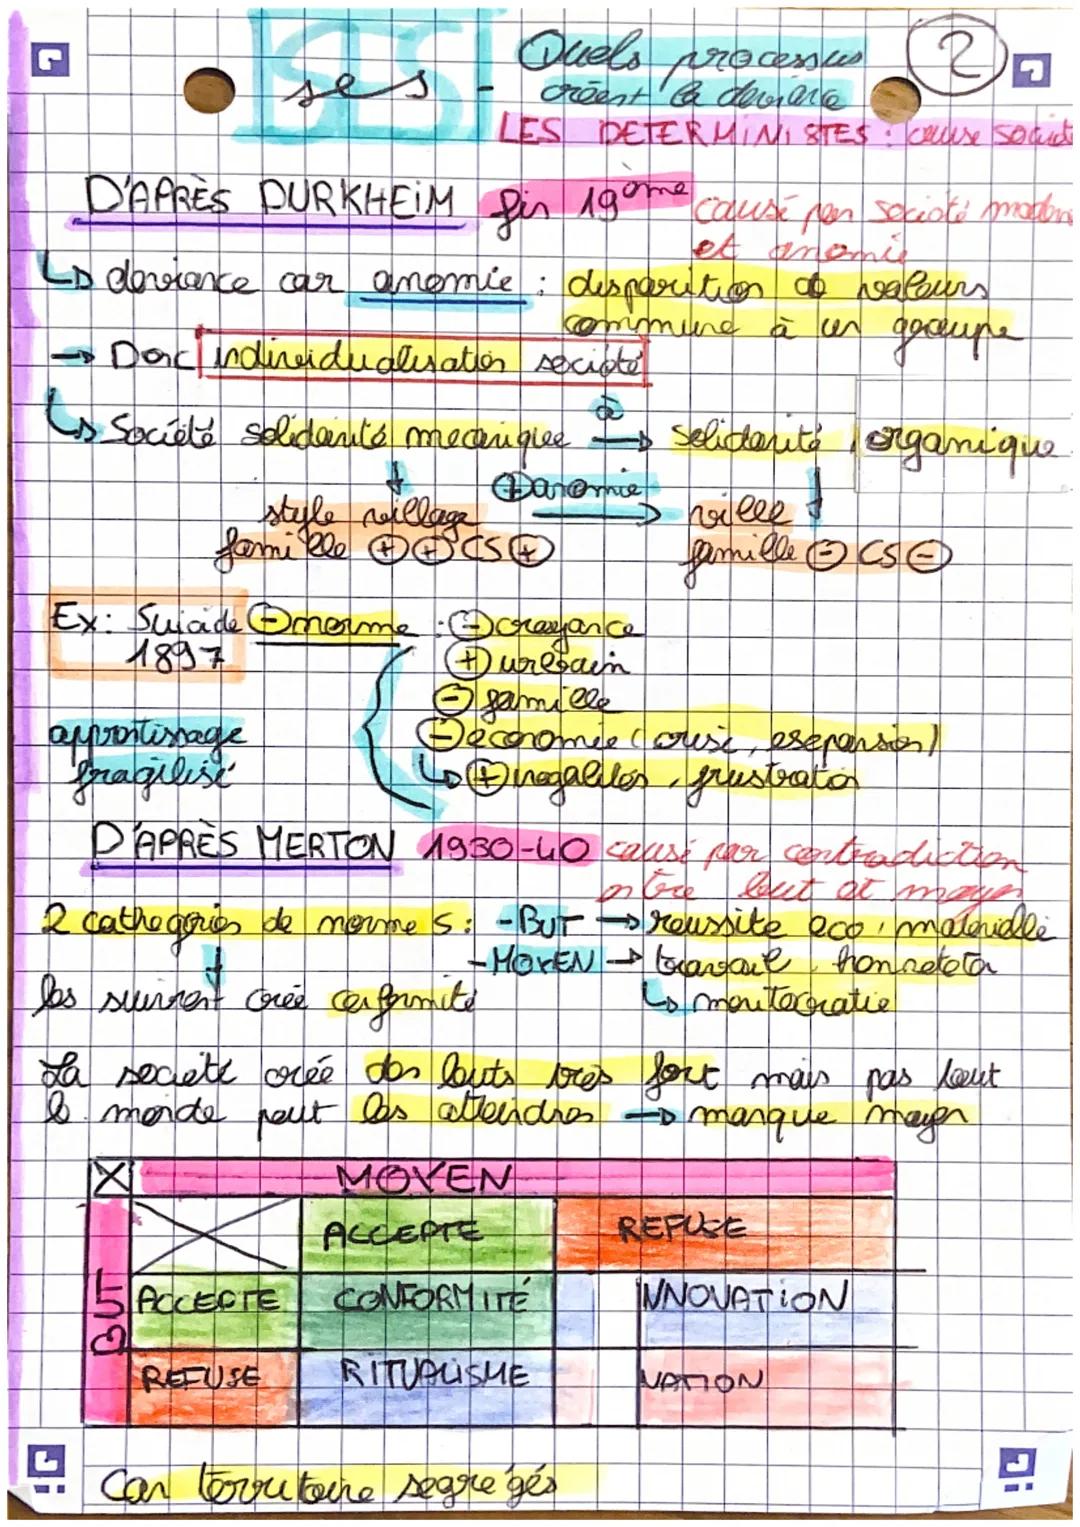 SES
ses - Quels processus
créent la deviance
2
LES DETERMINISTES : cause sociét
D'APRÈS DURKHEIM fin 19ème causé par societé modern
et anomie
↳ deviance car anomie : disparition de valeurs
commune à un groupe
→ Donc individualisation société
↳ Société solidarité mecanique à → solidarité organique
↓ ⊕ anomie → ↓
style village ville
famille ⊕ ⊕ CS ⊕ famille ⊖ CS ⊖
Ex: Suicide ⊖ norme : ⊖ croyance
1897 ⊕ urbain
⊖ famille
apprentissage ⊖ économie (crise, expansion)
fragilisé ↳ ⊕ inegalités, frustration
D'APRÈS MERTON 1930-40 causé par contradiction
entre but et moyen
2 cathegories de normes : - BUT → reussite eco, materielle
↓ - MOYEN → travail, honneteté
les suivre créé conformité ↳ meritocratie
La societé créé des buts très fort mais pas tout
le monde peut les atteindres → manque moyen
X MOYEN
ACCEPTE REFUSE
BUT ACCEPTE CONFORMITÉ INNOVATION
REFUSE RITUALISME NATION
Car territoire segregés